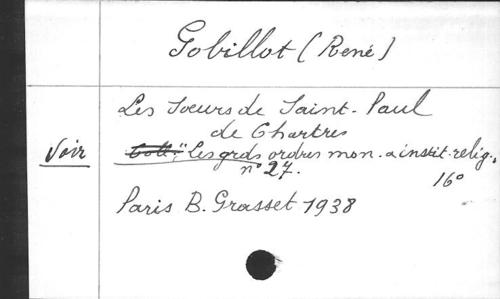 Gobillot (René)
Les Soeurs de Saint-Paul
de Chartres
Voir Coll. "Les grds ordres mon. & instit. relig.,
n° 27.
16°
Paris B. Grasset 1938